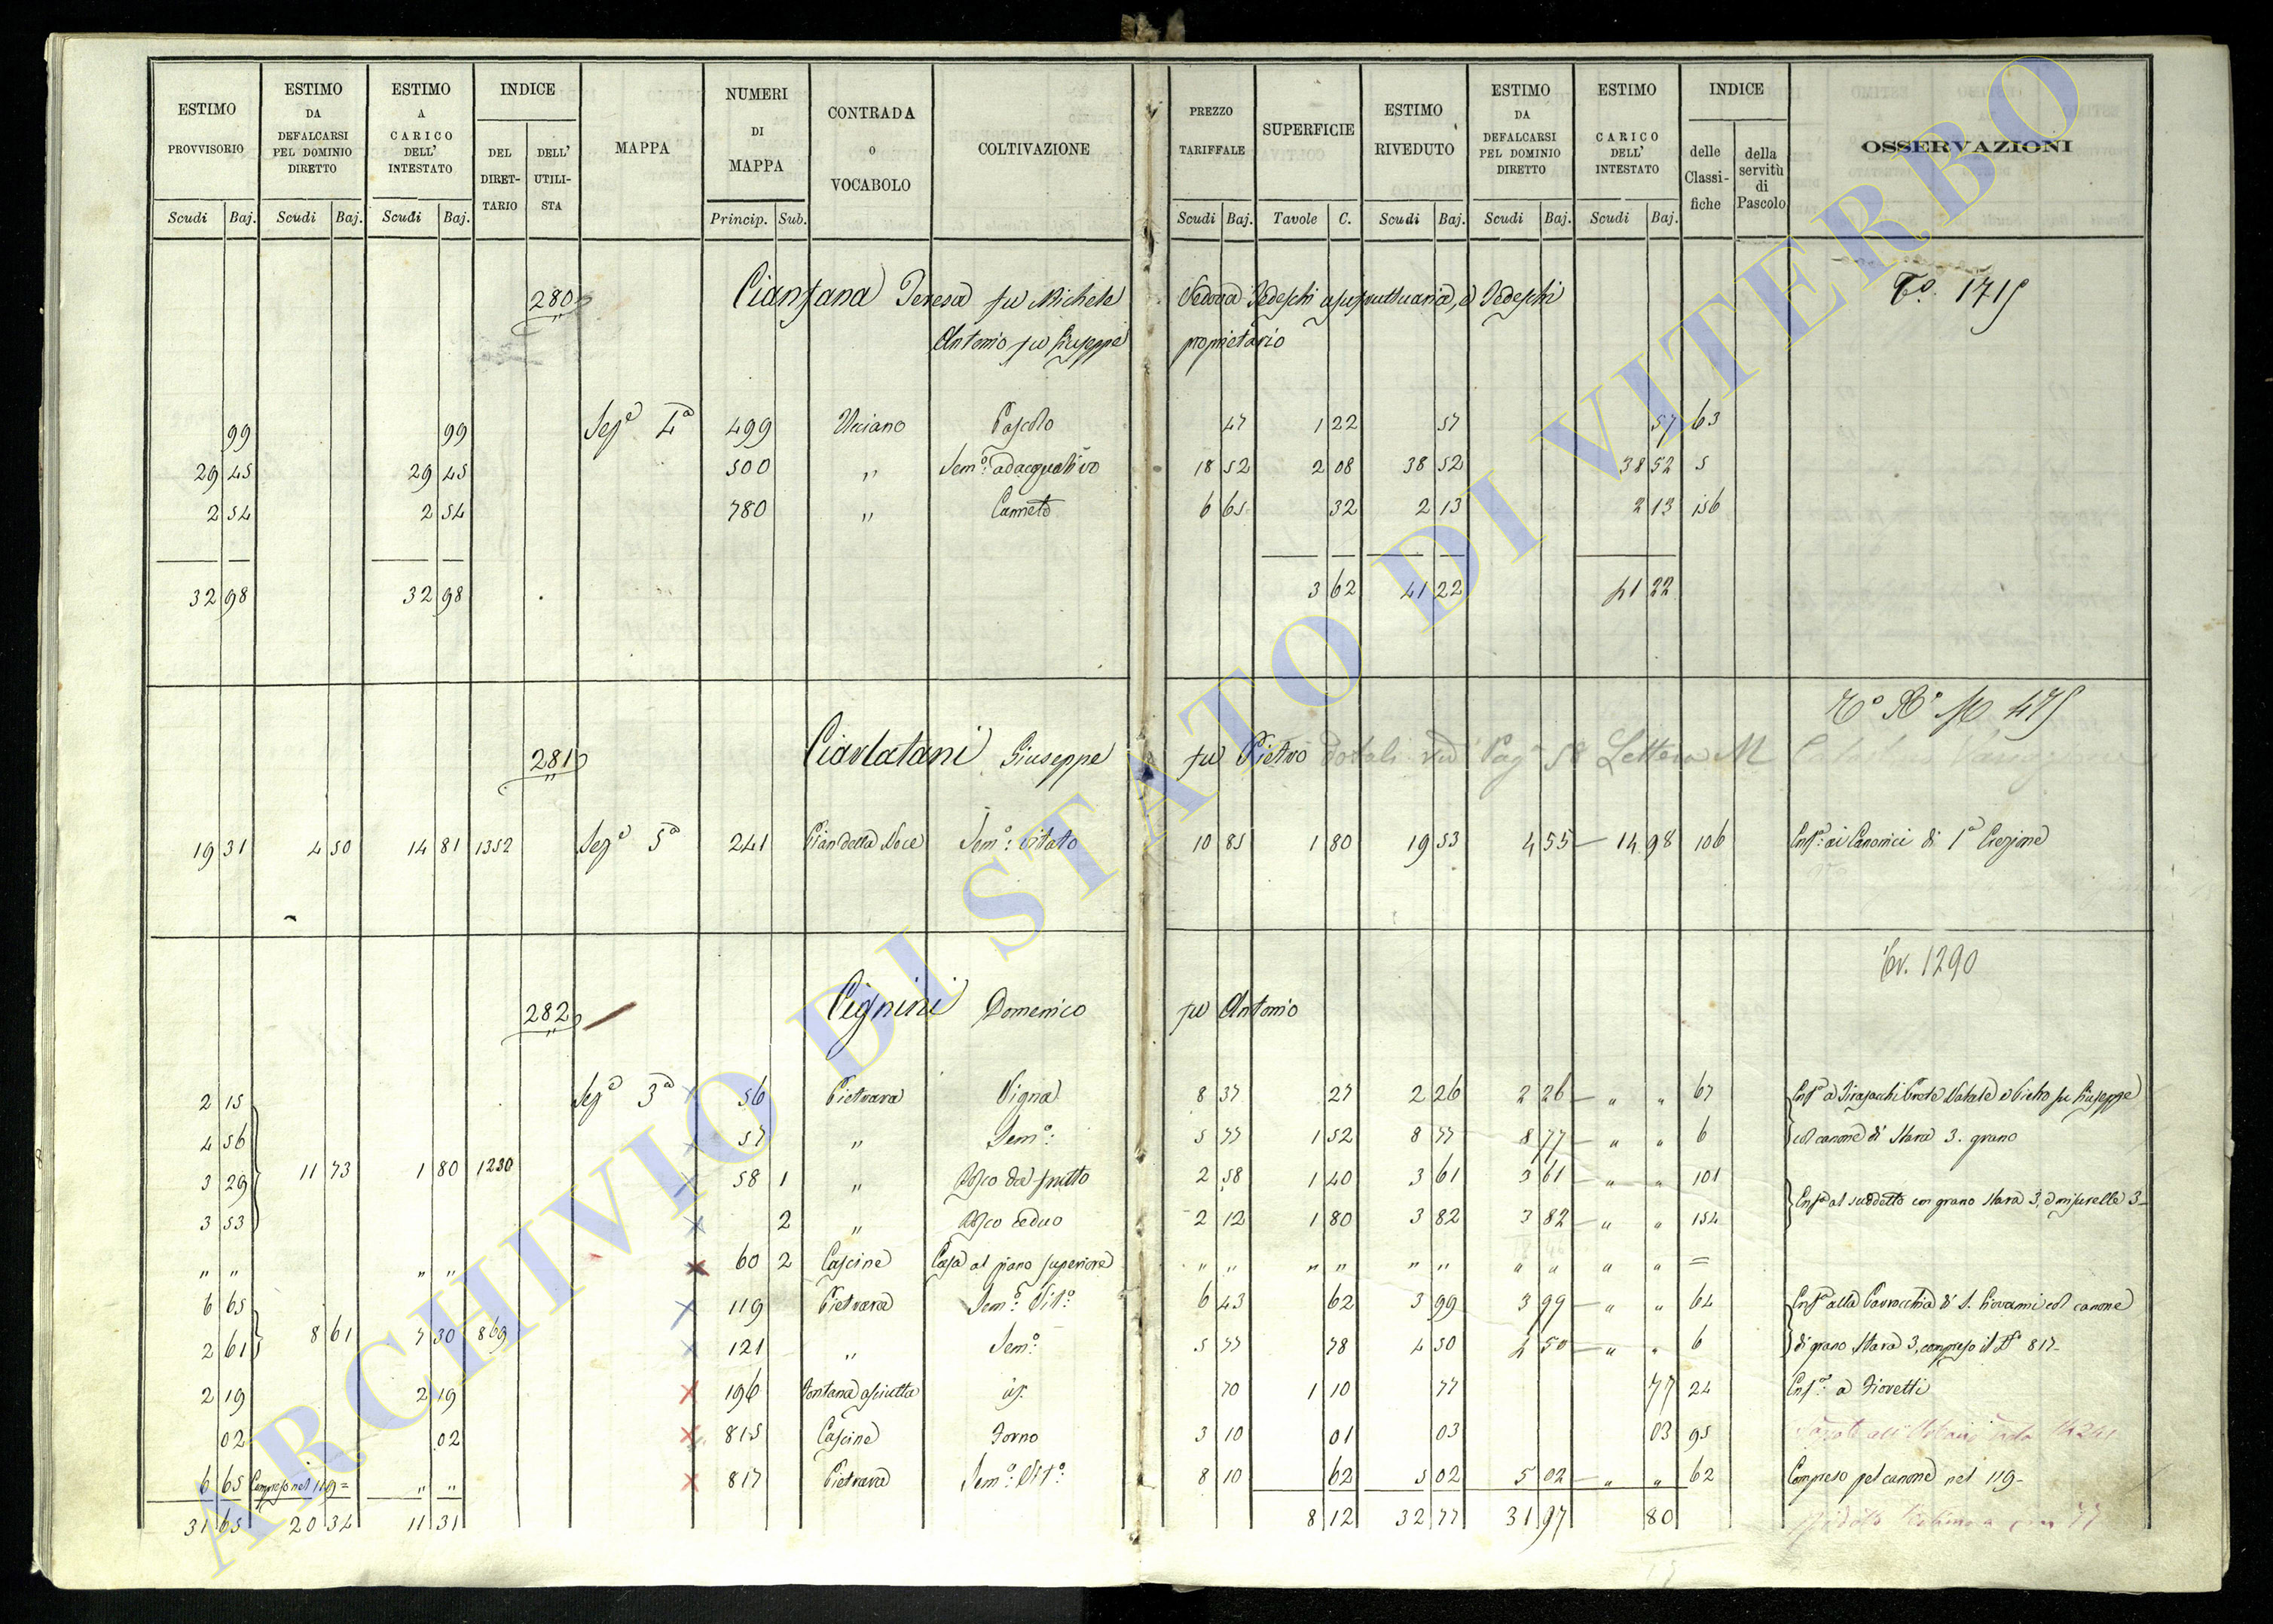 ESTIMO PROVVISORIO Scudi Baj. | ESTIMO DA DEFALCARSI PEL DOMINIO DIRETTO Scudi Baj. | ESTIMO A CARICO DELL' INTESTATO Scudi Baj. | INDICE DEL DIRETTARIO DELL' UTILISTA | MAPPA | NUMERI DI MAPPA Princip. Sub. | CONTRADA o VOCABOLO | COLTIVAZIONE | PREZZO TARIFFALE Scudi Baj. | SUPERFICIE Tavole C. | ESTIMO RIVEDUTO Scudi Baj. | ESTIMO DA DEFALCARSI PEL DOMINIO DIRETTO Scudi Baj. | ESTIMO A CARICO DELL' INTESTATO Scudi Baj. | INDICE delle Classifiche della servitù di Pascolo | OSSERVAZIONI
280 Cianfana Teresa fu Michele Vedova Tedeschi usufruttuaria, e Tedeschi T.° 1715
Antonio fu Giuseppe proprietario
99 99 Sez.e 4a 499 Pascolo 47 1 22 57 57 63
29 45 29 45 500 " Sem.o: adacquativo 18 52 2 08 38 52 38 52 5
2 54 2 54 780 " Canneto 6 65 32 2 13 2 13 156
32 98 32 98 3 62 41 22 41 22
475
281 Ciarlatani Giuseppe fu Pietro dotali Pag 58 Lettera M
19 31 4 50 14 81 1352 Sez.e 5a 241 Pian della Noce Sem.o: vitato 10 85 1 80 19 53 4 55 — 14 98 106 Enf.a: ai Canonici di 1a Erezione
1290
282 Cignini Domenico fu Antonio
2 15 Sez.e 3a 56 Pietrara Vigna 8 37 27 2 26 2 26 — " " 67 Enf.a a Prete Natale e Pietro fu Giuseppe
4 56 57 " Sem.o: 5 77 1 52 8 77 8 77 — " " 6 col canone di Stara 3. grano
11 73 1 80 1230
3 29 58 1 " Bosco da frutto 2 58 1 40 3 61 3 61 — " " 101
3 53 2 " Bosco ceduo 2 12 1 80 3 82 3 82 — " " 154 Enf.a al suddetto con grano Stara 3, e misurelle 3-
" " " " 60 2 Cascine Casa al piano superiore " " " " " " " " " " =
6 65 119 Pietrara Sem.o: Vit.o: 6 43 62 3 99 3 99 — " " 64 Enf.a alla Parrocchia di S. Giovanni col canone
8 61 7 30 869
2 61 121 " Sem.o: 5 77 78 4 50 4 50 — " " 6 di grano Stara 3, compreso il N.° 817-
2 19 2 19 196 Fontana asciutta id. 70 1 10 77 77 24 Enf.a: a Fioretti
02 02 815 Cascine Forno 3 10 01 03 03 95
6 65 Compreso nel 119= " " 817 Pietrara Sem.o: Vit.o: 8 10 62 5 02 5 02 — " " 62 Compreso pel canone nel 119-
31 65 20 34 11 31 8 12 32 77 31 97 80
ARCHIVIO DI STATO DI VITERBO